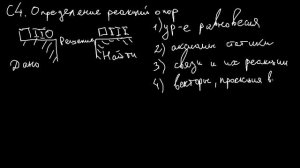 С4. Определение реакций опор
1) ур-е равновесия
2) аксиомы статики
3) связи и их реакции
4) векторы, проекция в
Решение
Дано
Найти